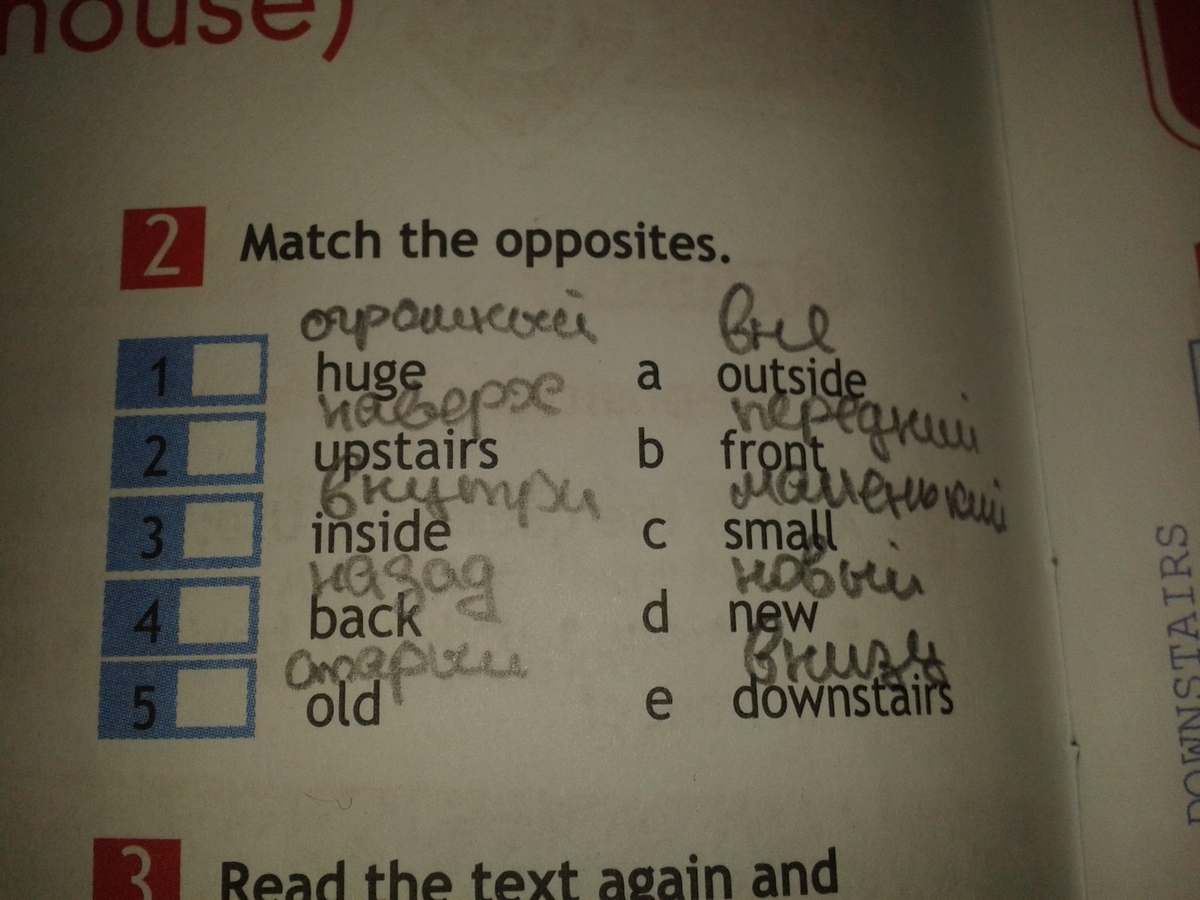 house)
2 Match the opposites.
огромный вне
1 huge a outside
наверх передний
2 upstairs b front
внутри маленький
3 inside c small
назад новый
4 back d new
старый внизу
5 old e downstairs
3 Read the text again and
DOWNSTAIRS